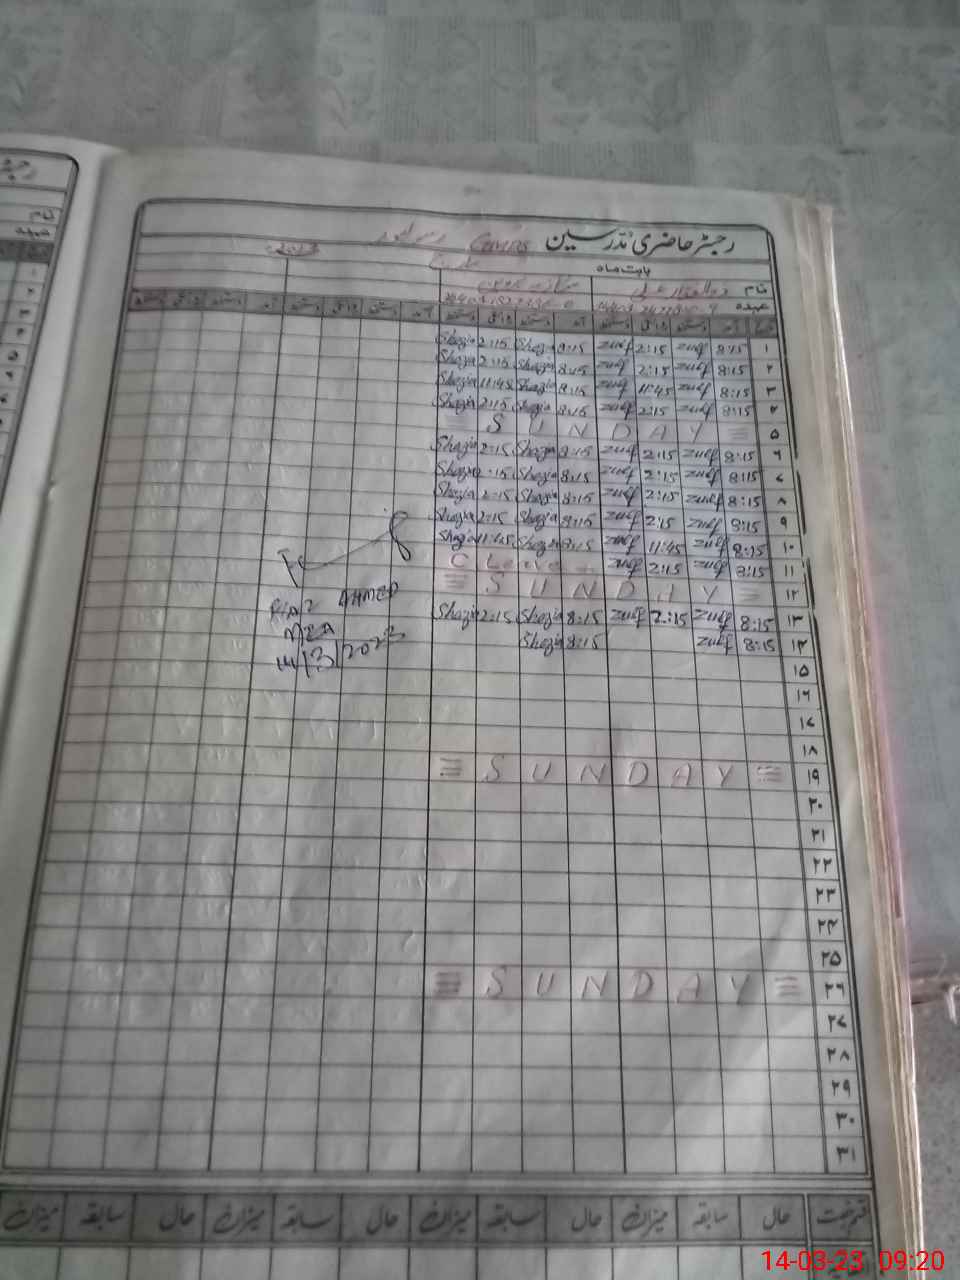 رجسٹر حاضری مدرسین GMPS رسولپور
بابت ماہ مارچ 2023
نام ذوالفقار علی شازیہ پروین
عہدہ
تاریخ آمد دستخط روانگی دستخط آمد دستخط روانگی دستخط آمد دستخط روانگی دستخط آمد دستخط روانگی دستخط
۱ 8:15 zulf 2:15 zulf 8:15 Shazia 2:15 Shazia
۲ 8:15 zulf 2:15 zulf 8:15 Shazia 2:15 Shazia
۳ 8:15 zulf 11:45 zulf 8:15 Shazia 11:45 Shazia
۴ 8:15 zulf 2:15 zulf 8:15 Shazia 2:15 Shazia
۵ = S U N D A Y =
۶ 8:15 zulf 2:15 zulf 8:15 Shazia 2:15 Shazia
۷ 8:15 zulf 2:15 zulf 8:15 Shazia 2:15 Shazia
۸ 8:15 zulf 2:15 zulf 8:15 Shazia 2:15 Shazia
۹ 8:15 zulf 2:15 zulf 8:15 Shazia 2:15 Shazia
۱۰ 8:15 zulf 11:45 zulf 8:15 Shazia 11:45 Shazia
۱۱ 8:15 zulf 2:15 zulf C Leave
۱۲ = S U N D A Y =
۱۳ 8:15 zulf 2:15 zulf 8:15 Shazia 2:15 Shazia
۱۴ 8:15 zulf 8:15 Shazia
RIAZ AHMED
MEA
14/3/2023
۱۵
۱۶
۱۷
۱۸
۱۹ = S U N D A Y =
۲۰
۲۱
۲۲
۲۳
۲۴
۲۵
۲۶ = S U N D A Y =
۲۷
۲۸
۲۹
۳۰
۳۱
قسم رخصت حال سابقہ میزان حال سابقہ میزان حال سابقہ میزان حال سابقہ میزان
14-03-23 09:20